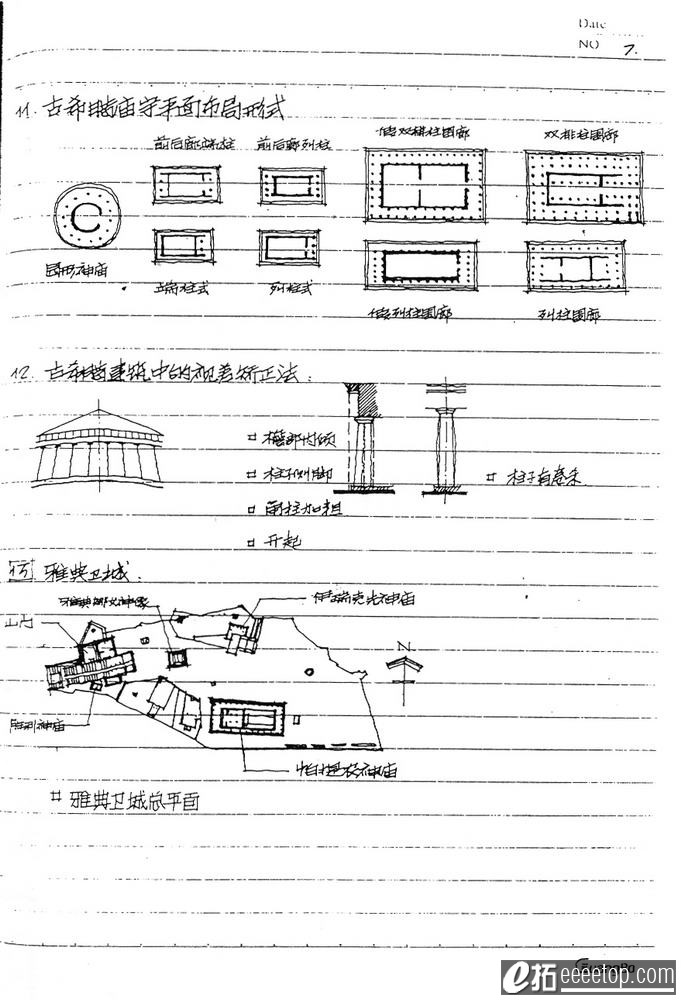 Date
NO 7.
11. 古希腊庙宇平面布局形式
前后廊端柱 前后廊列柱 假双排柱围廊 双排柱围廊
圆形神庙 端柱式 列柱式 假列柱围廊 列柱围廊
12. 古希腊建筑中的视差矫正法：
檐部内倾
柱子侧脚
柱子有卷杀
角柱加粗
升起
13 雅典卫城.
雅典娜女神像 伊瑞克先神庙
山门
N
胜利神庙
帕提农神庙
雅典卫城总平面
GuangBo
e拓 eeeetop.com